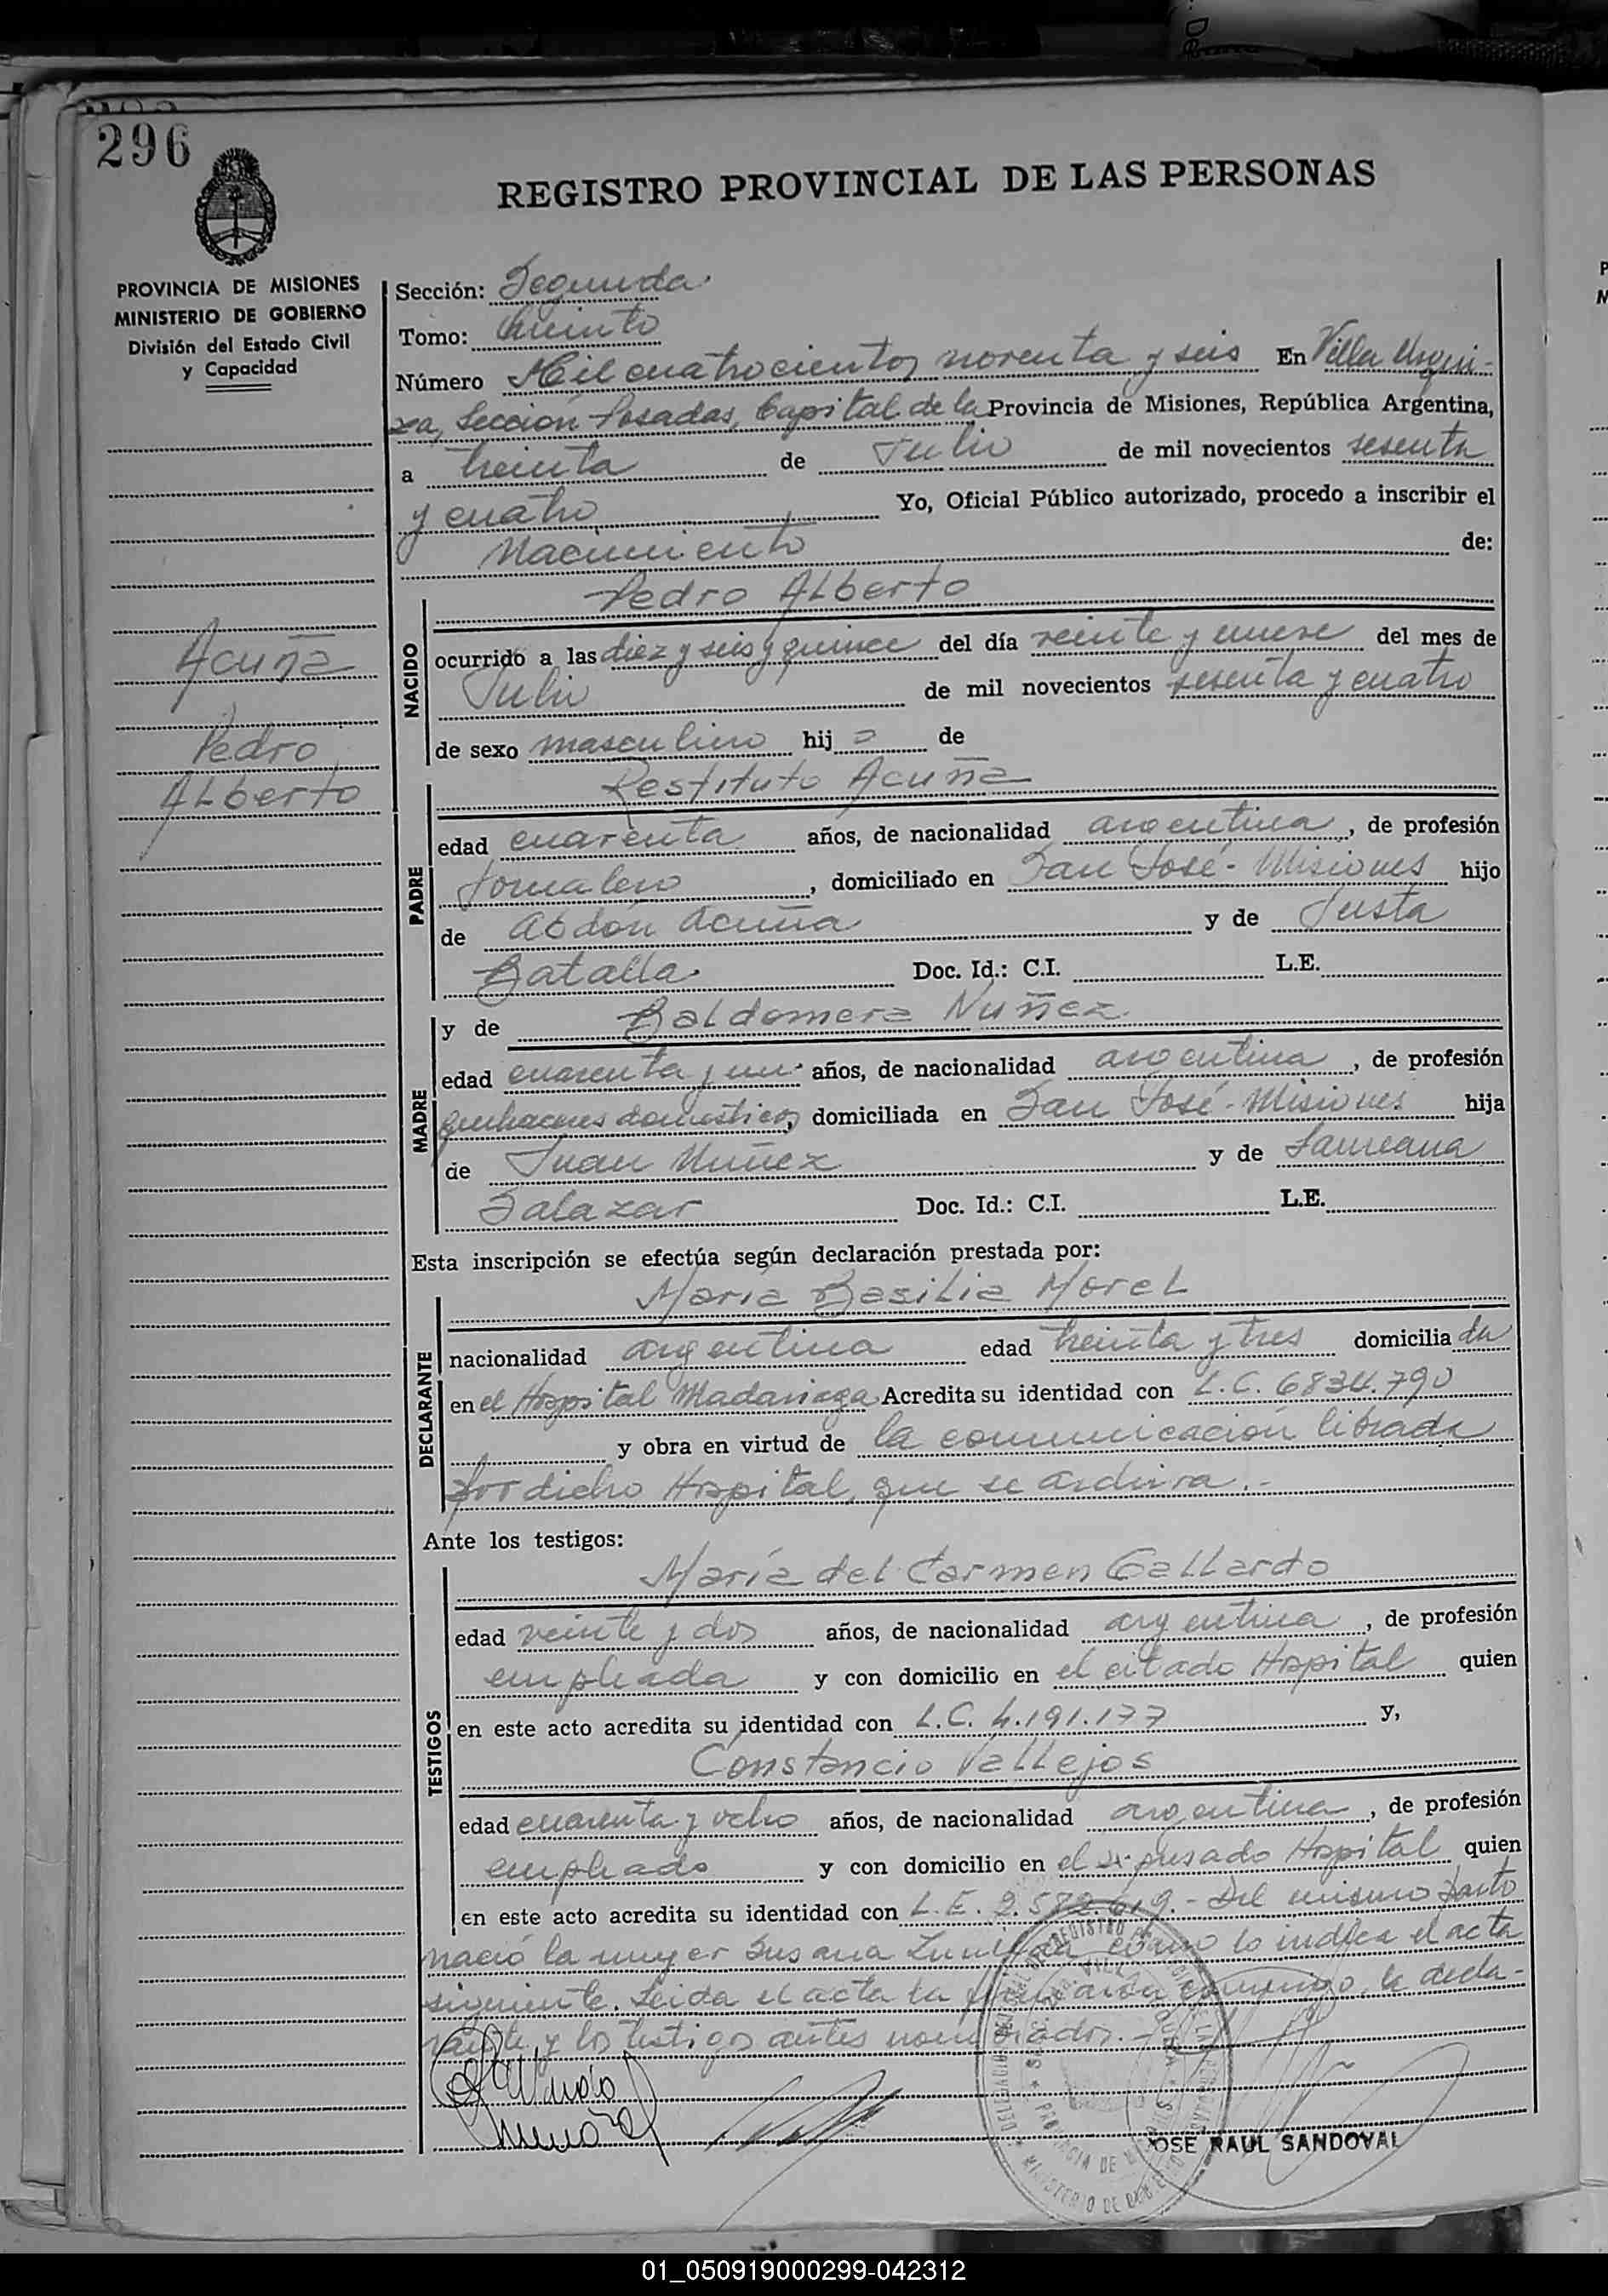 296
REGISTRO PROVINCIAL DE LAS PERSONAS
PROVINCIA DE MISIONES
MINISTERIO DE GOBIERNO
División del Estado Civil
y Capacidad
Acuña
Pedro
Alberto
Sección: Segunda.
Tomo: Quinto
Número Mil cuatrocientos noventa y seis En Villa Urqui-
za, Sección Posadas, Capital de la Provincia de Misiones, República Argentina,
a treinta de Julio de mil novecientos sesenta
y cuatro Yo, Oficial Público autorizado, procedo a inscribir el
Nacimiento de:
NACIDO
Pedro Alberto
ocurrido a las diez y seis y quince del día veinte y nueve del mes de
Julio de mil novecientos sesenta y cuatro
de sexo masculino hij o de
PADRE
Restituto Acuña
edad cuarenta años, de nacionalidad argentina, de profesión
Jornalero, domiciliado en San José - Misiones hijo
de Abdón Acuña y de Justa
Batalla. Doc. Id.: C.I. L.E.
MADRE
y de Baldomera Nuñez
edad cuarenta y un años, de nacionalidad argentina, de profesión
quehaceres domésticos, domiciliada en San José - Misiones hija
de Juan Nuñez y de Laureana
Salazar Doc. Id.: C.I. L.E.
Esta inscripción se efectúa según declaración prestada por:
DECLARANTE
María Basilia Morel
nacionalidad argentina edad treinta y tres domicilia da
en el Hospital Madariaga Acredita su identidad con L.C. 6834.790
y obra en virtud de la comunicación librada
por dicho Hospital, que se archiva.-
Ante los testigos:
TESTIGOS
María del Carmen Gallardo
edad veinte y dos años, de nacionalidad argentina, de profesión
empleada y con domicilio en el citado Hospital quien
en este acto acredita su identidad con L.C. 4.191.177 y,
Constancio Vallejos
edad cuarenta y ocho años, de nacionalidad argentina, de profesión
empleado y con domicilio en el expresado Hospital quien
en este acto acredita su identidad con L.E. 2.582.619.- Del mismo parto
nació la mujer Susana como lo indica el acta
siguiente. Leida el acta la firmaron conmigo, la decla-
rante y los testigos antes nombrados.-
JOSE RAUL SANDOVAL
01_050919000299-042312